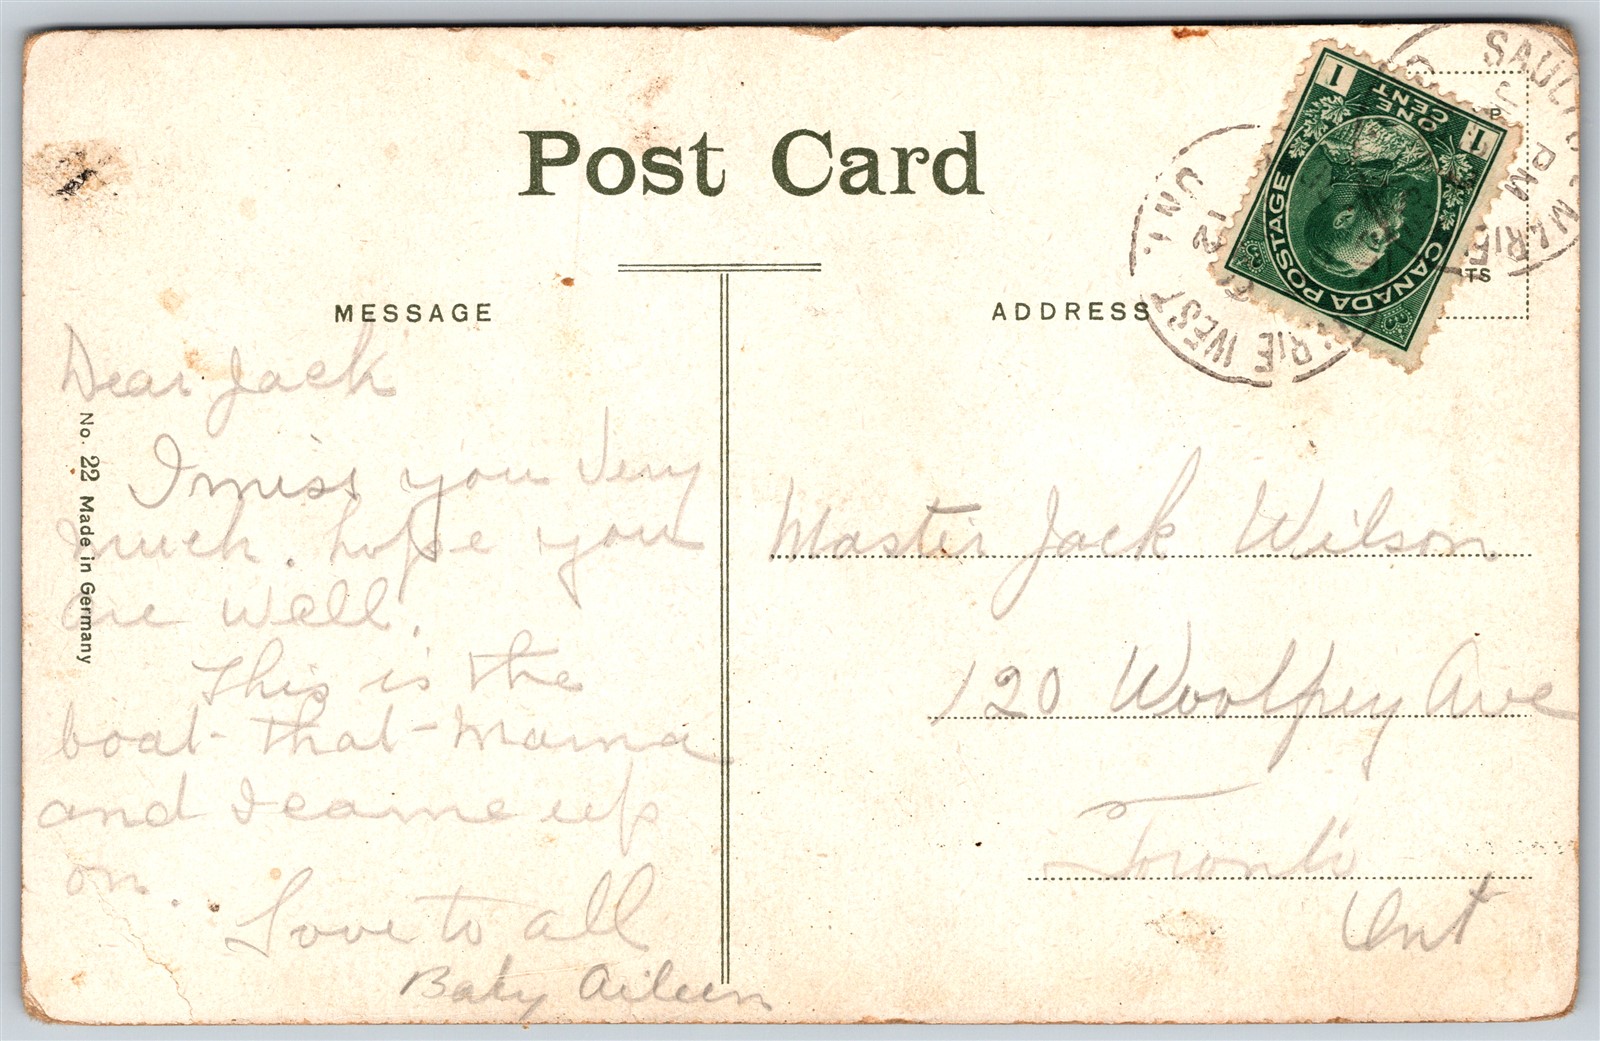 Post Card
MESSAGE
ADDRESS
SAULT
MARIE
PM
ONT.
12
RIE WEST
1 ONE CENT 1
CANADA POSTAGE
TS
No. 22 Made in Germany
Dear Jack
I miss you very
much. hope you
are well.
This is the
boat that Mama
and I came up
on.
Love to all
Baby Aileen
Master Jack Wilson
120 Woolfrey Ave
Toronto
Ont